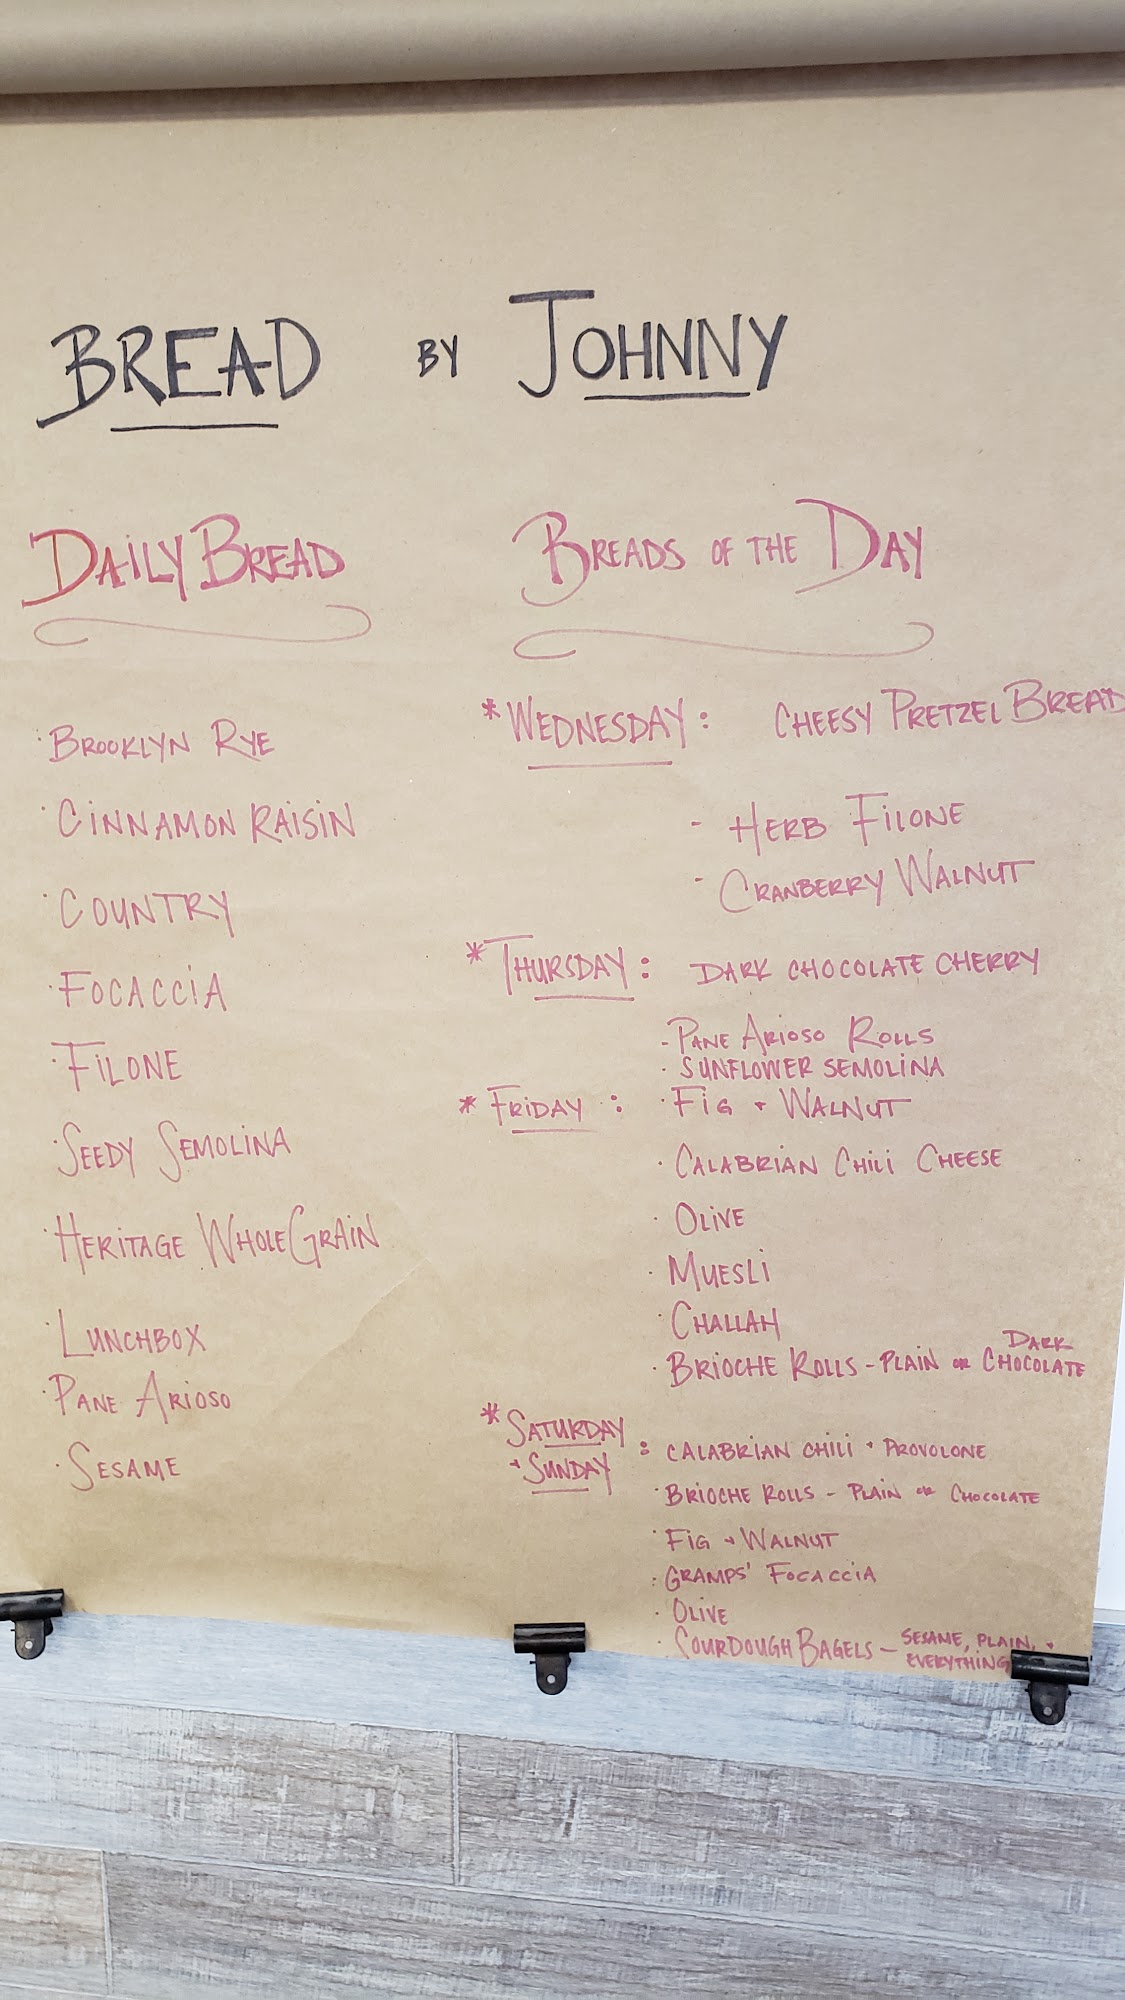 BREAD BY JOHNNY
DAILY BREAD
· BROOKLYN RYE
· CINNAMON RAISIN
· COUNTRY
· FOCACCIA
· FILONE
· SEEDY SEMOLINA
· HERITAGE WHOLE GRAIN
· LUNCHBOX
· PANE ARIOSO
· SESAME
BREADS OF THE DAY
* WEDNESDAY: CHEESY PRETZEL BREAD
- HERB FILONE
- CRANBERRY WALNUT
* THURSDAY: DARK CHOCOLATE CHERRY
- PANE ARIOSO ROLLS
· SUNFLOWER SEMOLINA
* FRIDAY: · FIG + WALNUT
· CALABRIAN CHILI CHEESE
· OLIVE
· MUESLI
· CHALLAH
DARK
· BRIOCHE ROLLS - PLAIN OR CHOCOLATE
* SATURDAY
+ SUNDAY : CALABRIAN CHILI + PROVOLONE
· BRIOCHE ROLLS - PLAIN OR CHOCOLATE
· FIG + WALNUT
· GRAMPS' FOCACCIA
· OLIVE
· SOURDOUGH BAGELS - SESAME, PLAIN, +
EVERYTHING